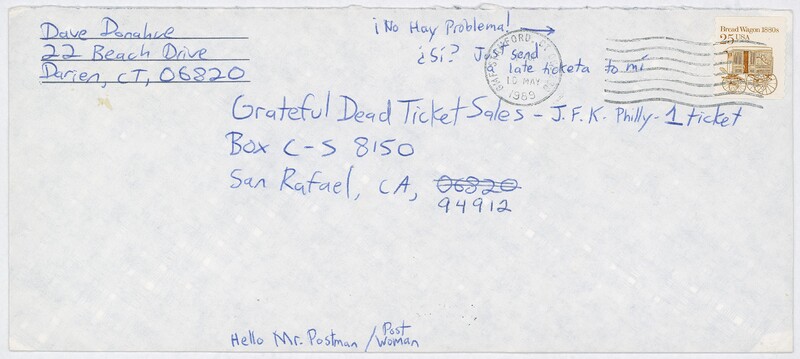 Dave Donahue
22 Beach Drive
Darien, CT, 06820
¡No Hay Problema!
¿Sí? Just send
late ticketa to mí
STAMFORD, CT
15 MAY
1989
Bread Wagon 1880s
25 USA
Grateful Dead Ticket Sales - J.F.K. Philly - 1 ticket
Box C-S 8150
San Rafael, CA, 06820
94912
Hello Mr. Postman / Post woman